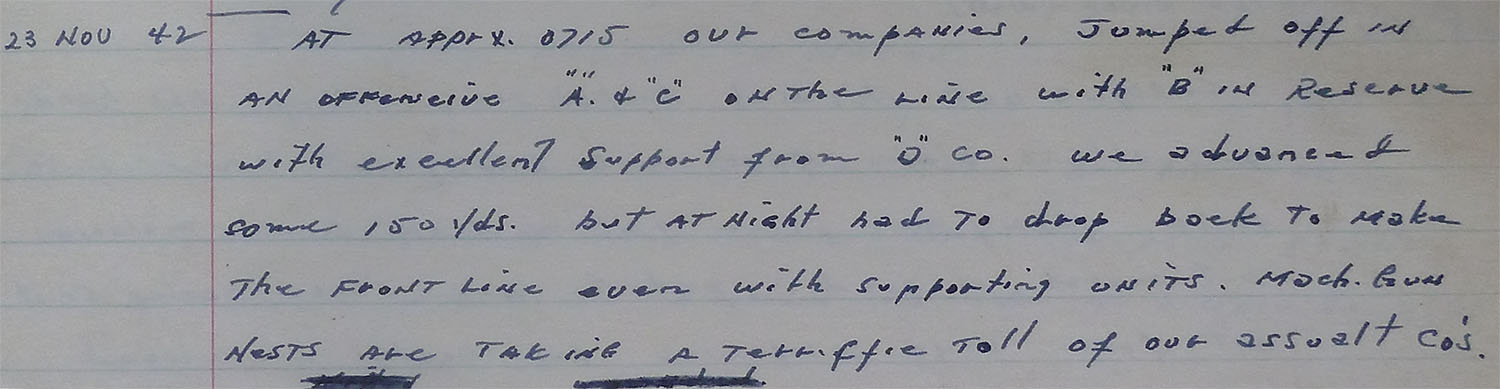 23 NOV 42 AT Apprx. 0715 our companies, Jumped off in
AN offensive "A". & "C" on the Line with "B" in Reserve
with excellent Support from "D" Co. we advanced
some 150 yds. but AT Night had To drop back To make
The FRONT Line even with supporting units. Mach. Gun
Nests Are Taking A Terriffic Toll of our assualt Co's.